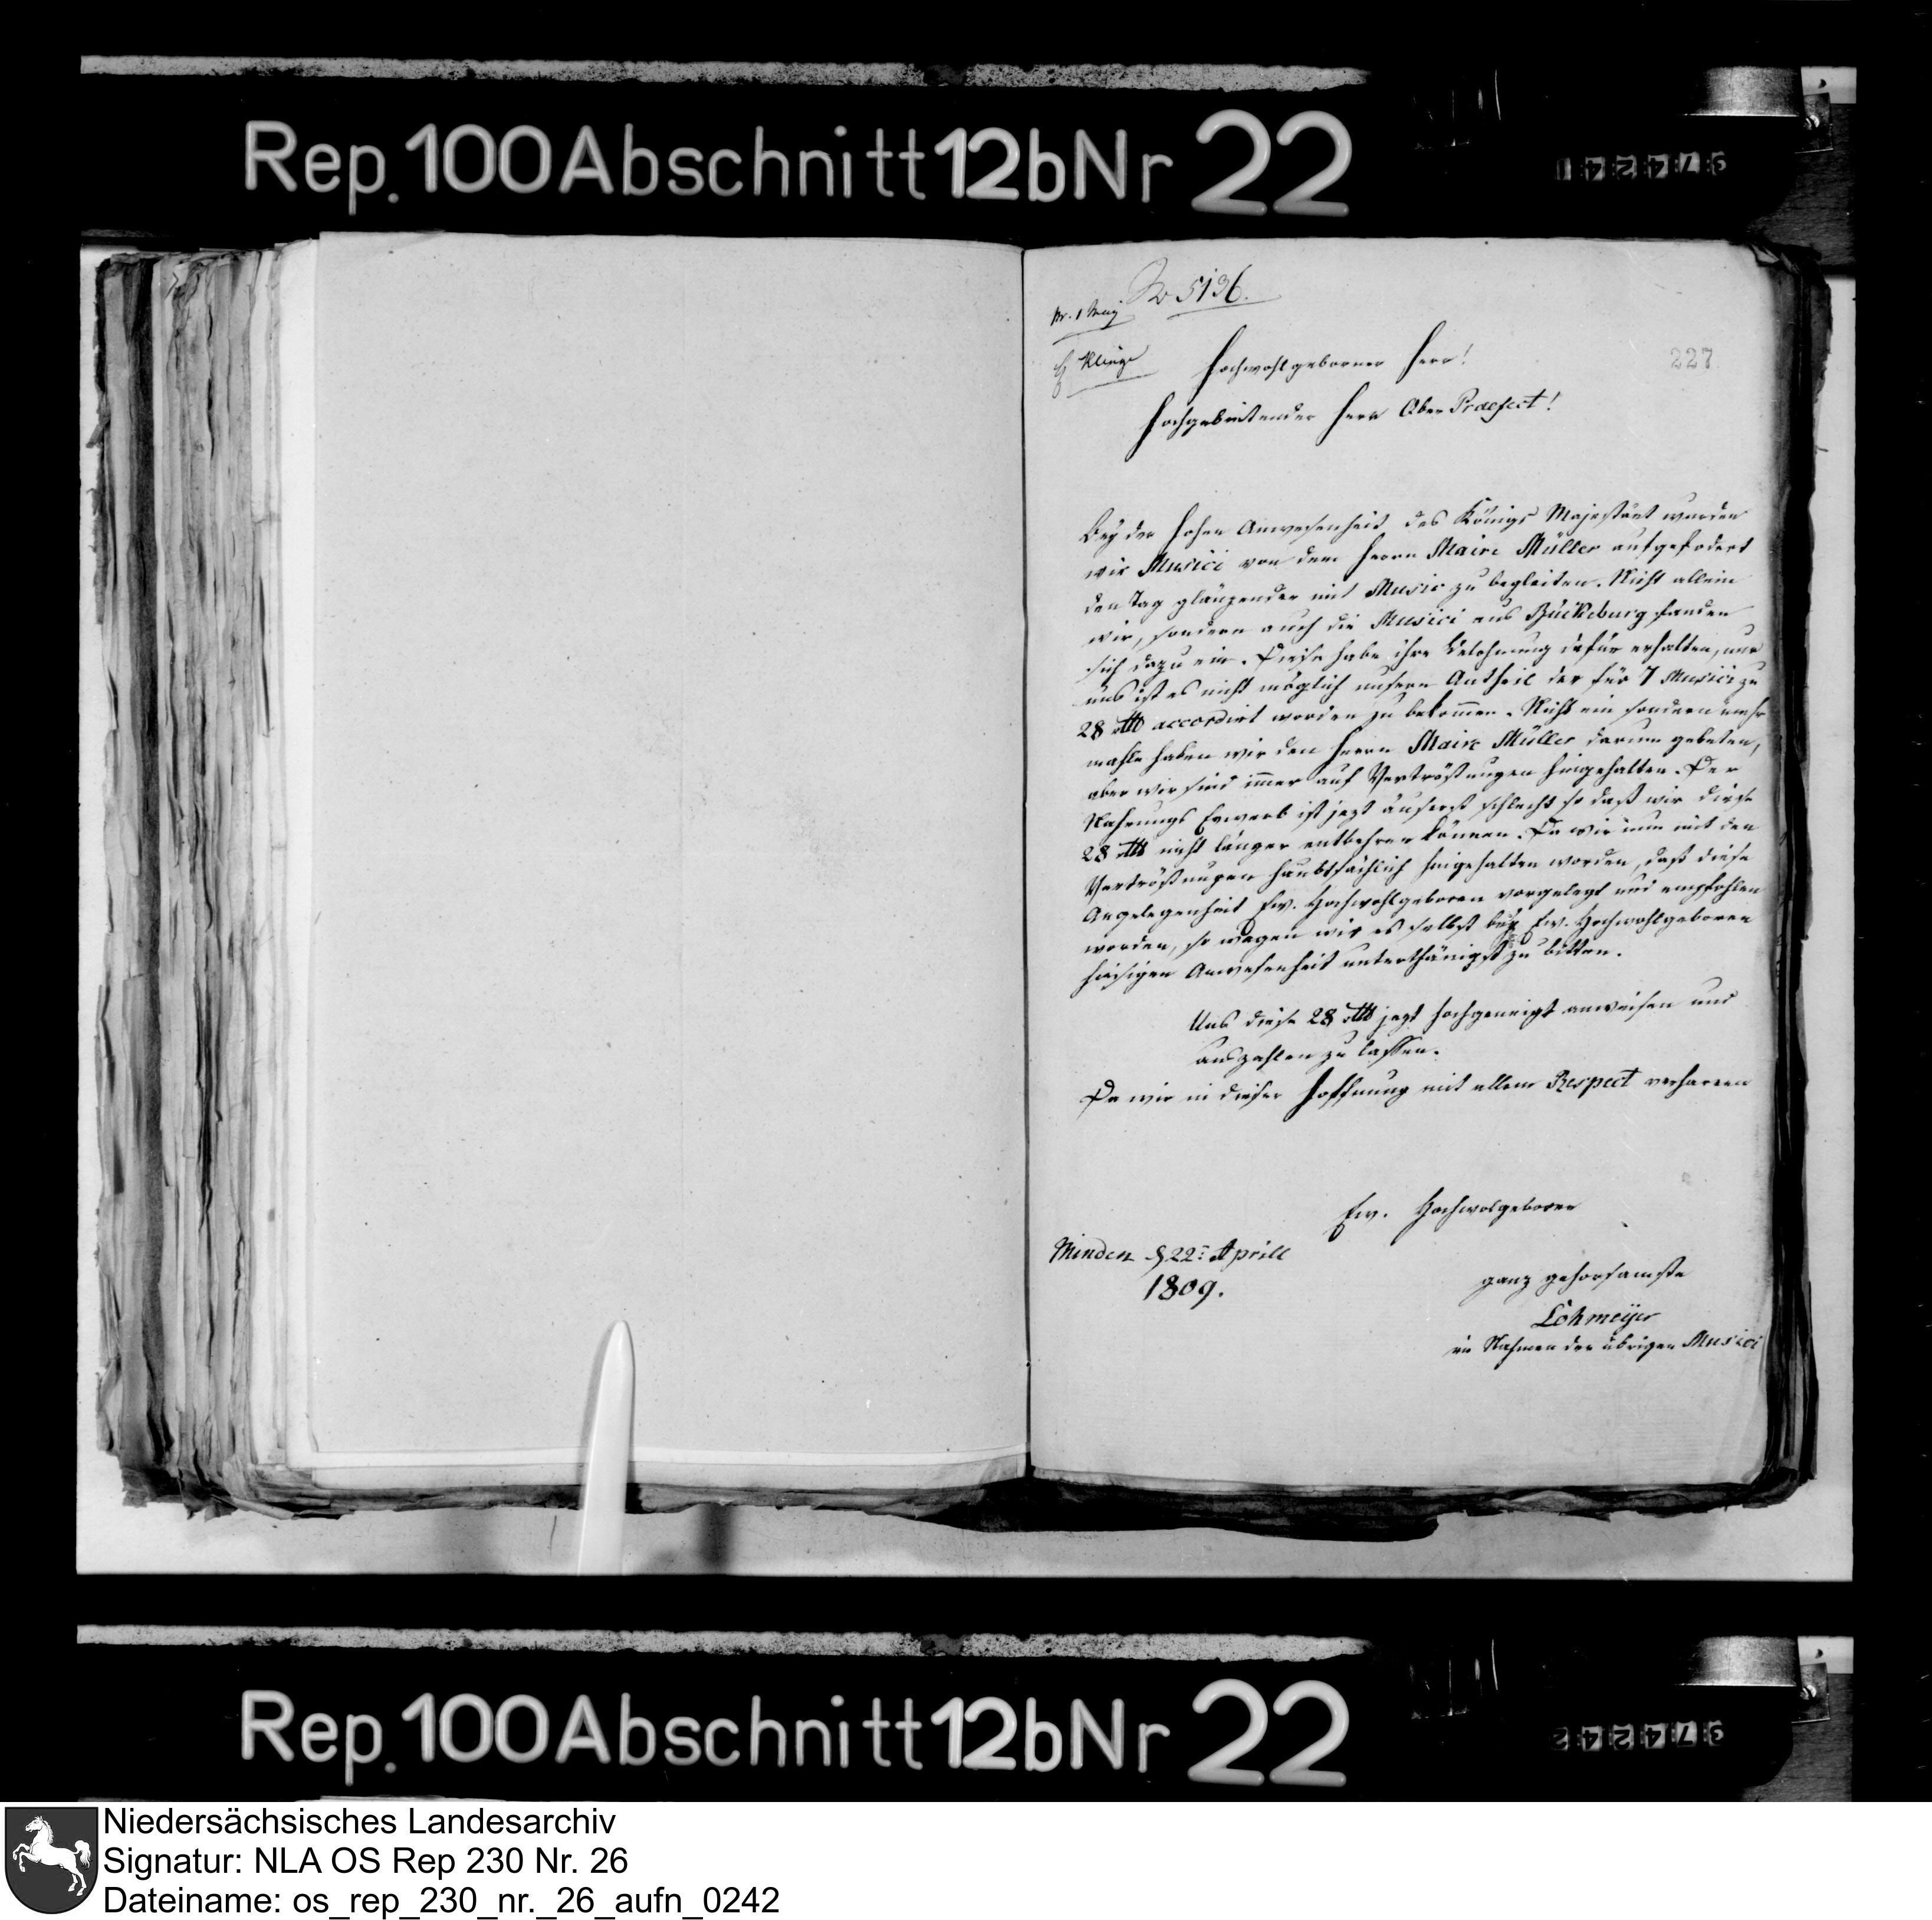 Rep. 100 Abschnitt 12b Nr 22
97 4 2 4 1
No 5136.
pr. 1 May
Klinge
227
Hochwohlgeborner Herr!
Hochgebietender Herr Ober Praefect!
Bey der hohen Anwesenheit des Königs Majestaet wurden
wir Musici von dem Herrn Maire Müller aufgefodert
den Tag glänzender mit Music zu begleiten. Nicht allein
wir, sondern auch die Musici aus Bückeburg fanden
sich dazu ein. Diese habe ihre Belohnung dafür erhalten, nur
uns ist es nicht möglich unsern Antheil der für 7 Musici zu
28 rth accordirt worden zu bekommen. Nicht ein sondern mehr
mahle haben wir den Herrn Maire Müller darum gebeten,
aber wir sind immer auf Vertröstungen hingehalten. Der
Nahrungs Erwerb ist jezt äuserst schlecht so daß wir diese
28 rth nicht länger entbehren können. Da wir nun mit den
Vertröstungen haubtsächlich hingehalten worden, daß diese
Angelegenheit Ew. Hochwohlgeboren vorgelegt und empfohlen
worden, so wagen wir es selbst bey Ew. Hochwohlgeboren
hiesigen Anwesenheit unterthänigst zu bitten.
Uns diese 28 rth jezt hochgeneigt anweisen und
auszahlen zu lassen.
Da wir in dieser Hoffnung mit allem Respect verharren
Ew. Hochwolgeboren
Minden d 22: Aprill
1809.
ganz gehorsamste
Lohmeijer
im Nahmen der übrigen Musici
Rep. 100 Abschnitt 12b Nr 22
97 4 2 4 2
Niedersächsisches Landesarchiv
Signatur: NLA OS Rep 230 Nr. 26
Dateiname: os_rep_230_nr._26_aufn_0242